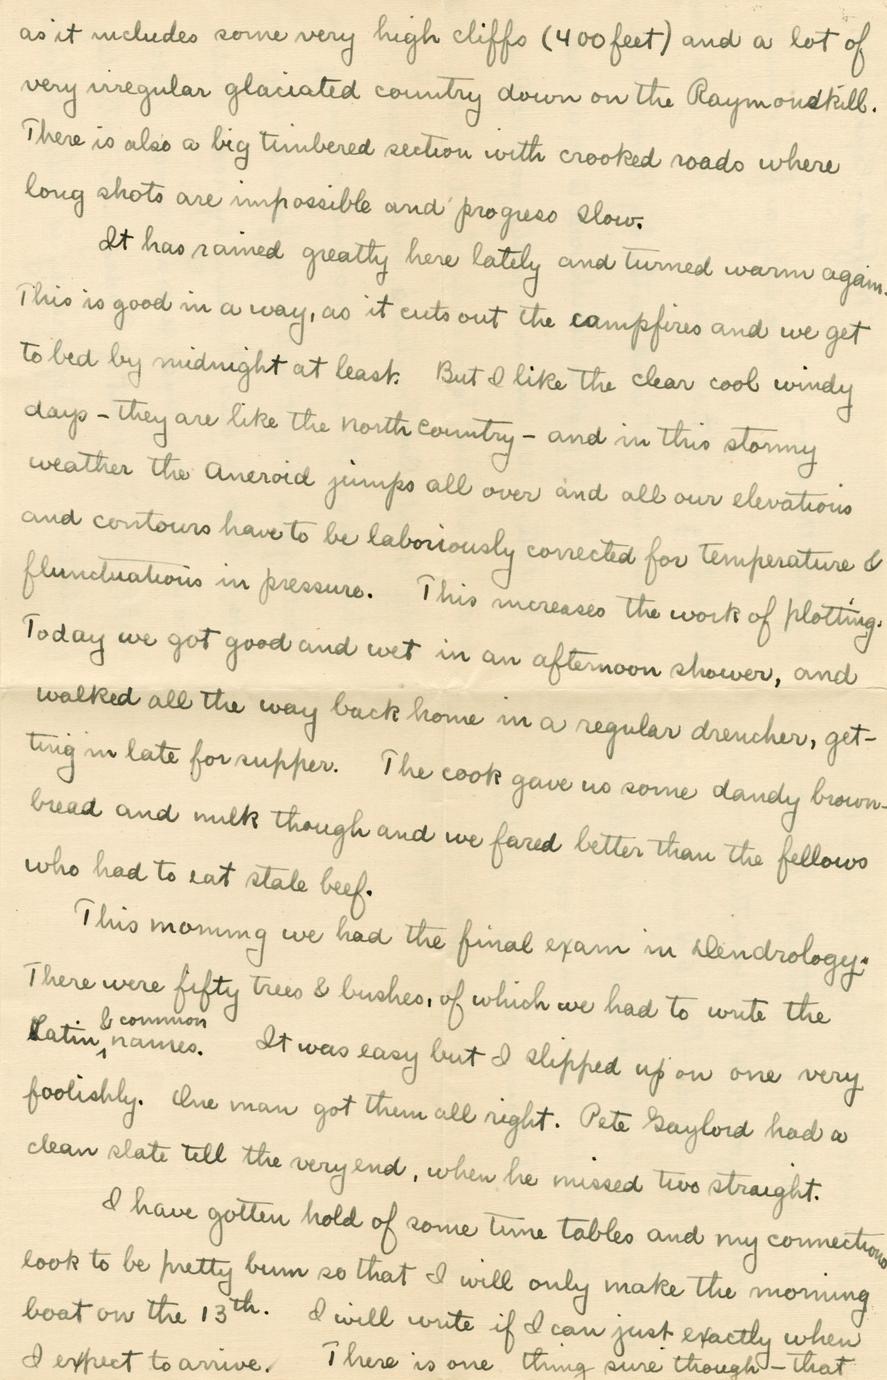 as it includes some very high cliffs (400 feet) and a lot of
very irregular glaciated country down on the Raymondskill.
There is also a big timbered section with crooked roads where
long shots are impossible and progress slow.
It has rained greatly here lately and turned warm again.
This is good in a way, as it cuts out the campfires and we get
to bed by midnight at least. But I like the clear cool windy
days – they are like the north country – and in this stormy
weather the Aneroid jumps all over and all our elevations
and contours have to be laboriously corrected for temperature &
flunctuations in pressure. This increases the work of plotting.
Today we got good and wet in an afternoon shower, and
walked all the way back home in a regular drencher, get-
ting in late for supper. The cook gave us some dandy brown-
bread and milk though and we fared better than the fellows
who had to eat stale beef.
This morning we had the final exam in Dendrology.
There were fifty trees & bushes, of which we had to write the
Latin & common names. It was easy but I slipped up on one very
foolishly. One man got them all right. Pete Gaylord had a
clean slate till the very end, when he missed two straight.
I have gotten hold of some time tables and my connections
look to be pretty bum so that I will only make the morning
boat on the 13th. I will write if I can just exactly when
I expect to arrive. There is one thing sure though – that